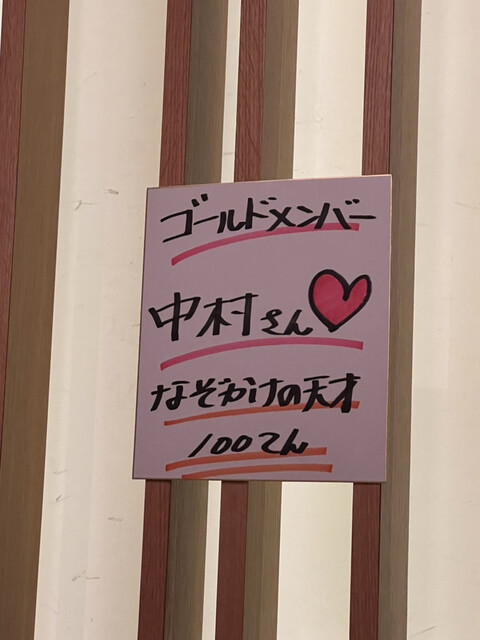 ゴールドメンバー
中村さん
なぞかけの天才
100てん